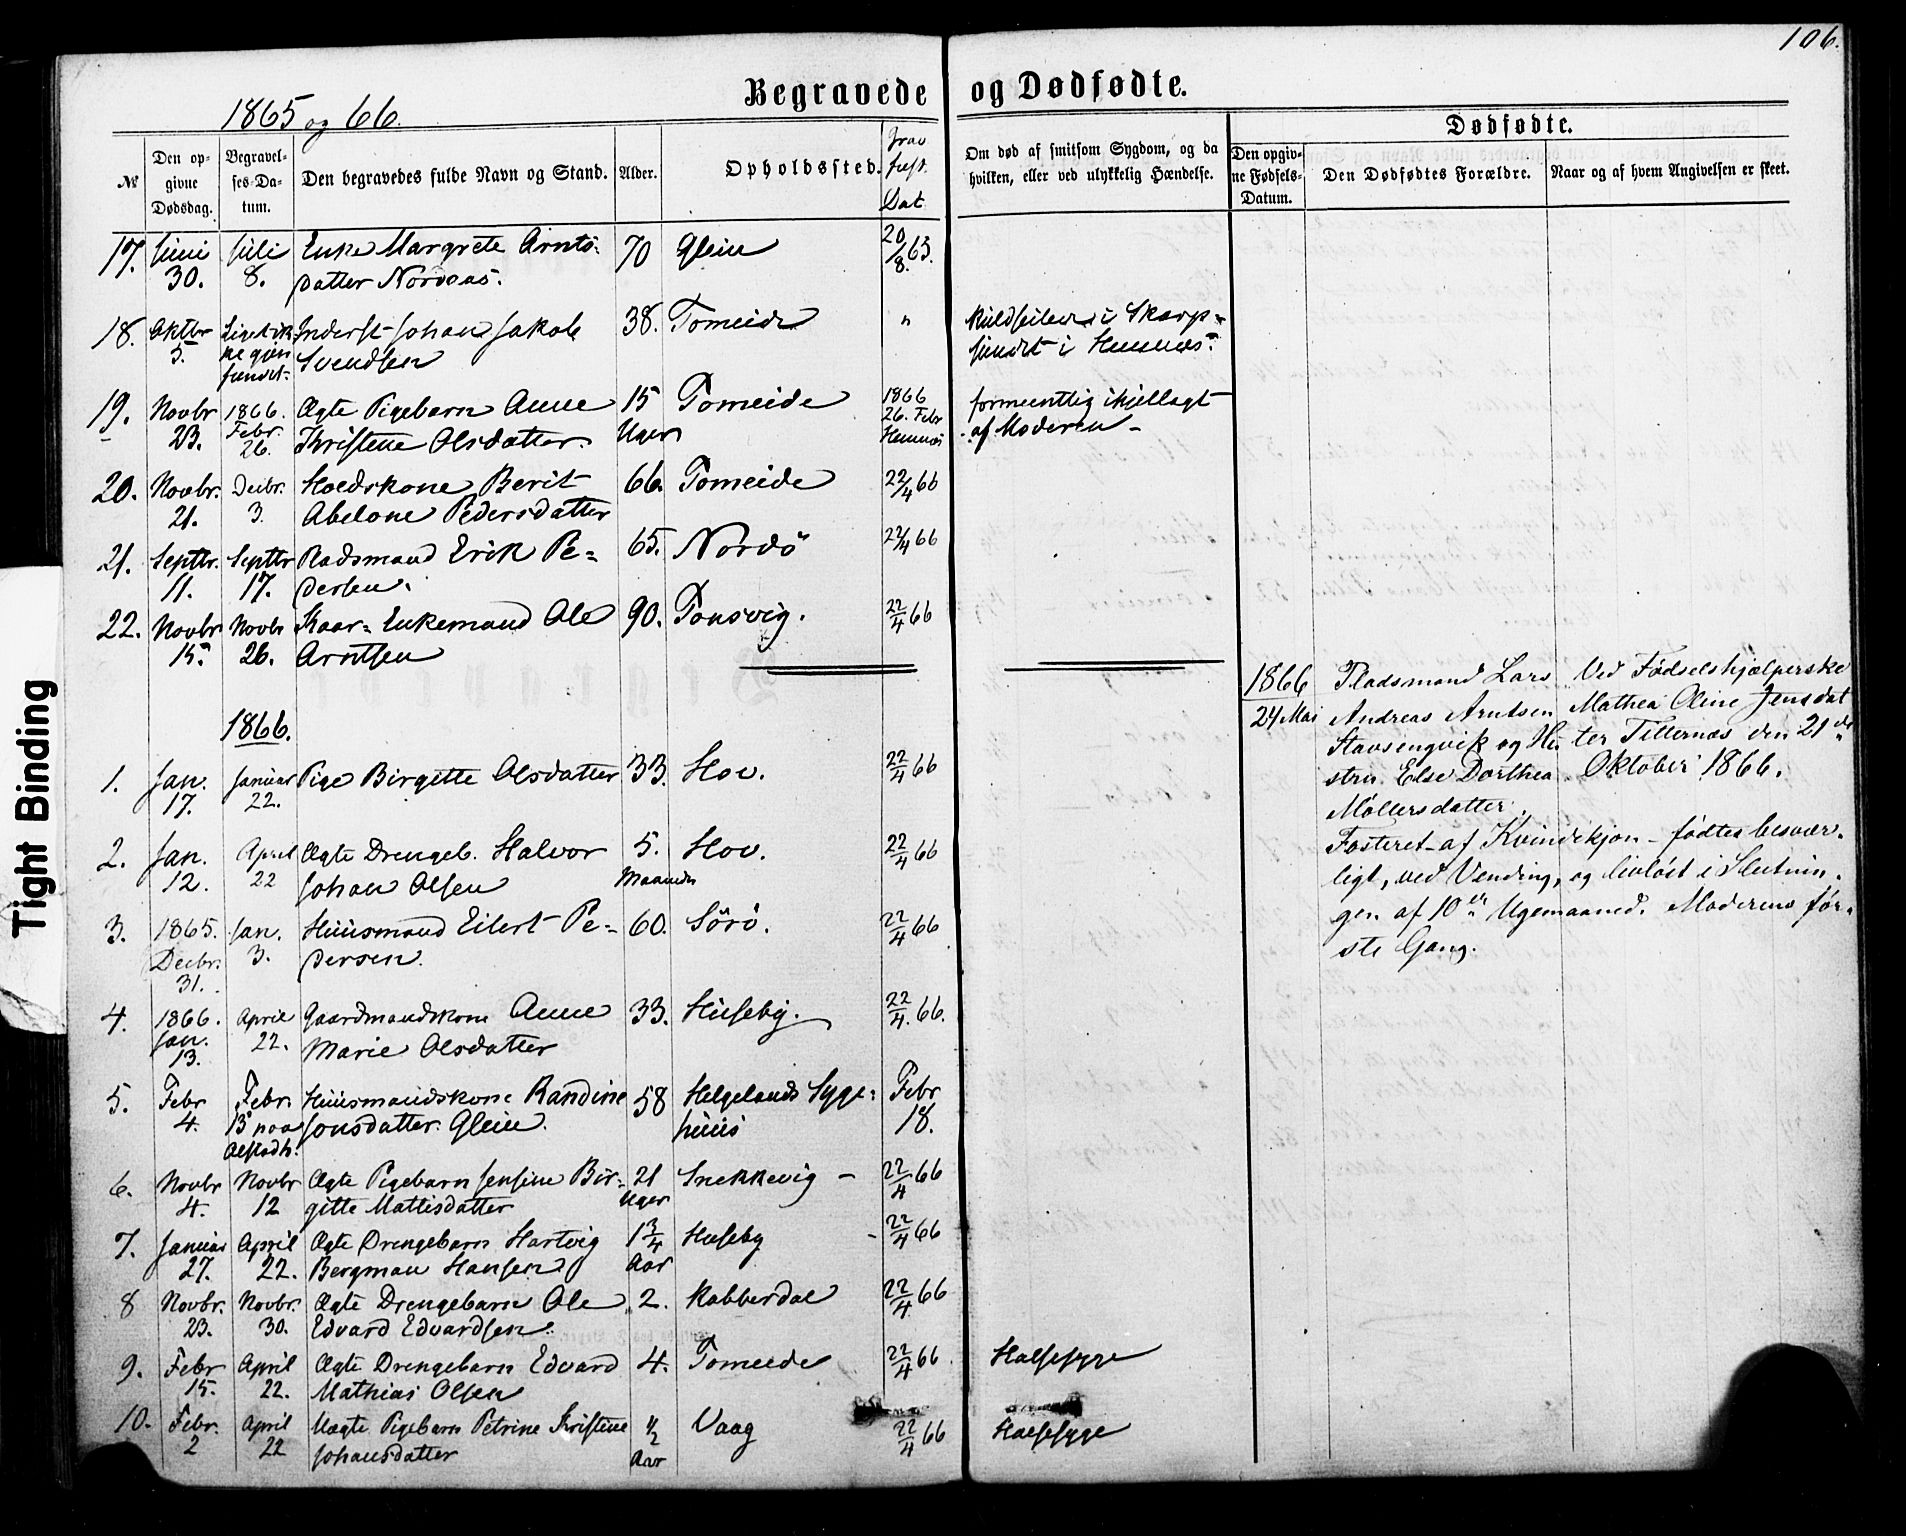 106.
Begravede og Dødfødte.
1865 og 66.
Dødfødte.
№
Den opgivne Dødsdag.
Begravelses-Datum.
Den begravedes fulde Navn og Stand.
Alder.
Opholdssted.
Grav fæst. Dat.
Om død af smitsom Sygdom, og da hvilken, eller ved ulykkelig Hændelse.
Den opgivne Fødsels-Datum.
Den Dødfødtes Forældre.
Naar og af hvem Angivelsen er skeet.
17. Juni Juli Enke Margrete Arnts- 70 Glein 20/8. 63.
30. 8. datter Nordaas.
18. Oktbr Liget ik Inderst Johan Jakob 38. Tomeide " kuldseilet i Skarp-
5. ke gjen Svendsen sundet i Hemnæs.
fundet.
19. Novbr 1866. Ægte Pigebarn Anne 15 Tomeide 1866 formeentlig ihjellagt
23. Febr. Kristine Olsdatter. Uger 26. Febr af Moderen
26. Hemnæs
20. Novbr. Decbr. Hoedskone Berit 66. Tomeide 22/4 66
21. 3. Abelone Pedersdatter
21. Septbr. Septbr Pladsmand Erik Pe= 65. Nordö 22/4 66
11. 17. dersen.
22. Novbr Novbr Kaar= Enkemand Ole 90. Tonsvig. 22/4 66
15. 26. Arntsen
1866.
1. Jan. Januar Pige Birgitte Olsdatter 33. Hov. 22/4 66
17. 22.
2. Jan. April Ægte Drengeb. Halvor 5. Hov. 22/4 66
12. 22 Johan Olsen Maaneder
3. 1865. Jan. Huusmand Eilert Pe= 60. Sörö. 22/4 66
Decbr. 3. dersen.
31.
4. 1866. April Gaardmandskone Anne 33. Huseby. 22/4. 66.
Jan. 22. Marie Olsdatter
13.
5. Febr Febr. Huusmandskone Randine 58 Helgelands Syge= Febr
4. 13 paa Jonsdatter Glein. huus 18.
Alstadh.
6. Novbr Novbr Ægte Pigebarn Jensine Bir= 21 Snekkevig - 22/4 66
4. 12 gitte Mattisdatter Uger
7. Januar April Ægte Drengebarn Hartvig 1 3/4 Huseby - 22/4 66
27. 22. Bergman Hansen Aar
8 Novbr. Novbr. Ægte Drengebarn Ole 2. Kobberdal 22/4 66
23. 30. Edvard Edvardsen.
9. Febr April Ægte Drengebarn Edvard 4. Tomeide 22/4 66 Halssyge
15. 22. Mathias Olsen
10. Febr. April Uægte Pigebarn Petrine Kristine 1/2 Vaag 22/4 66 Halssyge
2 22 Johansdatter Aar
1866 Pladsmand Lars Ved Fødselshjælperske
24 Mai Andreas Arntsen Mathea Oline Jensdat
Stavsengvik og Hu- ter Tillernæs den 21de
stru Else Dorthea Oktober 1866.
Møllersdatter.
Fosteret af Kvindekjøn fødtes besvær-
ligt, ved Vending, og livløst i Slutnin-
gen af 10de Ugemaaned. Moderens før-
ste Gang.
Tight Binding